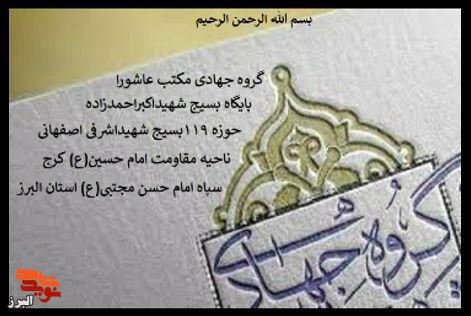 بسم الله الرحمن الرحیم
گروه جهادی مکتب عاشورا
پایگاه بسیج شهیداکبراحمدزاده
حوزه ۱۱۹بسیج شهیداشرفی اصفهانی
ناحیه مقاومت امام حسین(ع) کرج
سپاه امام حسن مجتبی(ع) استان البرز
گروه جهادی
البرز